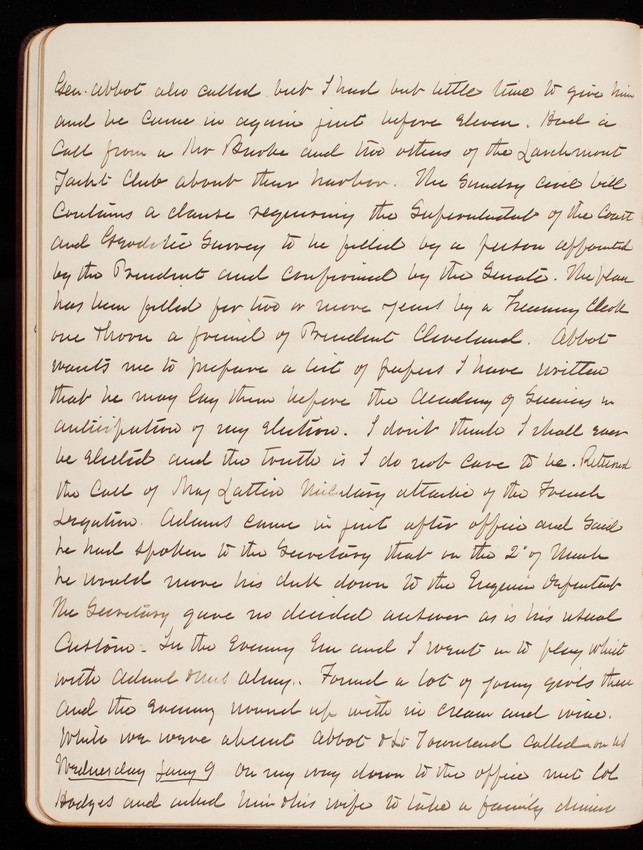 Gen. Abbot also called but I had but little time to give him
and he came in again just before eleven. Had a
call from a Mr Burke and two others of the Larchmont
Yacht Club about their harbor. The Sundry civil bill
contains a clause requiring the Superintendent of the Coast
and Geodetic Survey to be filled by a person appointed
by the President and confirmed by the Senate. The place
has been filled for two or more years by a Treasury Clerk
one Thorn a friend of President Cleveland. Abbot
wants me to prepare a list of papers I have written
that he may lay them before the Academy of Sciences in
anticipation of my election. I don't think I shall ever
be elected and the truth is I do not care to be. Returned
the call of Maj Military attache of the French
Legation. Adams came in just after office and said
he had spoken to the Secretary that on the 2d of March
he would move his desk down to the Engineer Department
The Secretary gave no decided answer as is his usual
custom. In the evening Em and I went in to play whist
with Adml & Mrs . Found a lot of young girls there
and the evening wound up with ice cream and wine.
While we were absent Abbot & Lt Townsend called on us
Wednesday Jany 9 On my way down to the office met Col
Hodges and asked him & his wife to take a family dinner